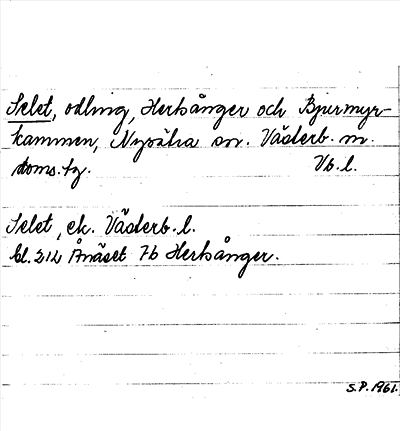 Selet, odling, Herrsånger och Bjurmyr-
kammen, Nysätra sn. Västerb. m.
doms. tg. Vb. l.
Selet, ek. Västerb. l.
bl. 212 Ånäset 7b Herrsånger.
S.P. 1961.